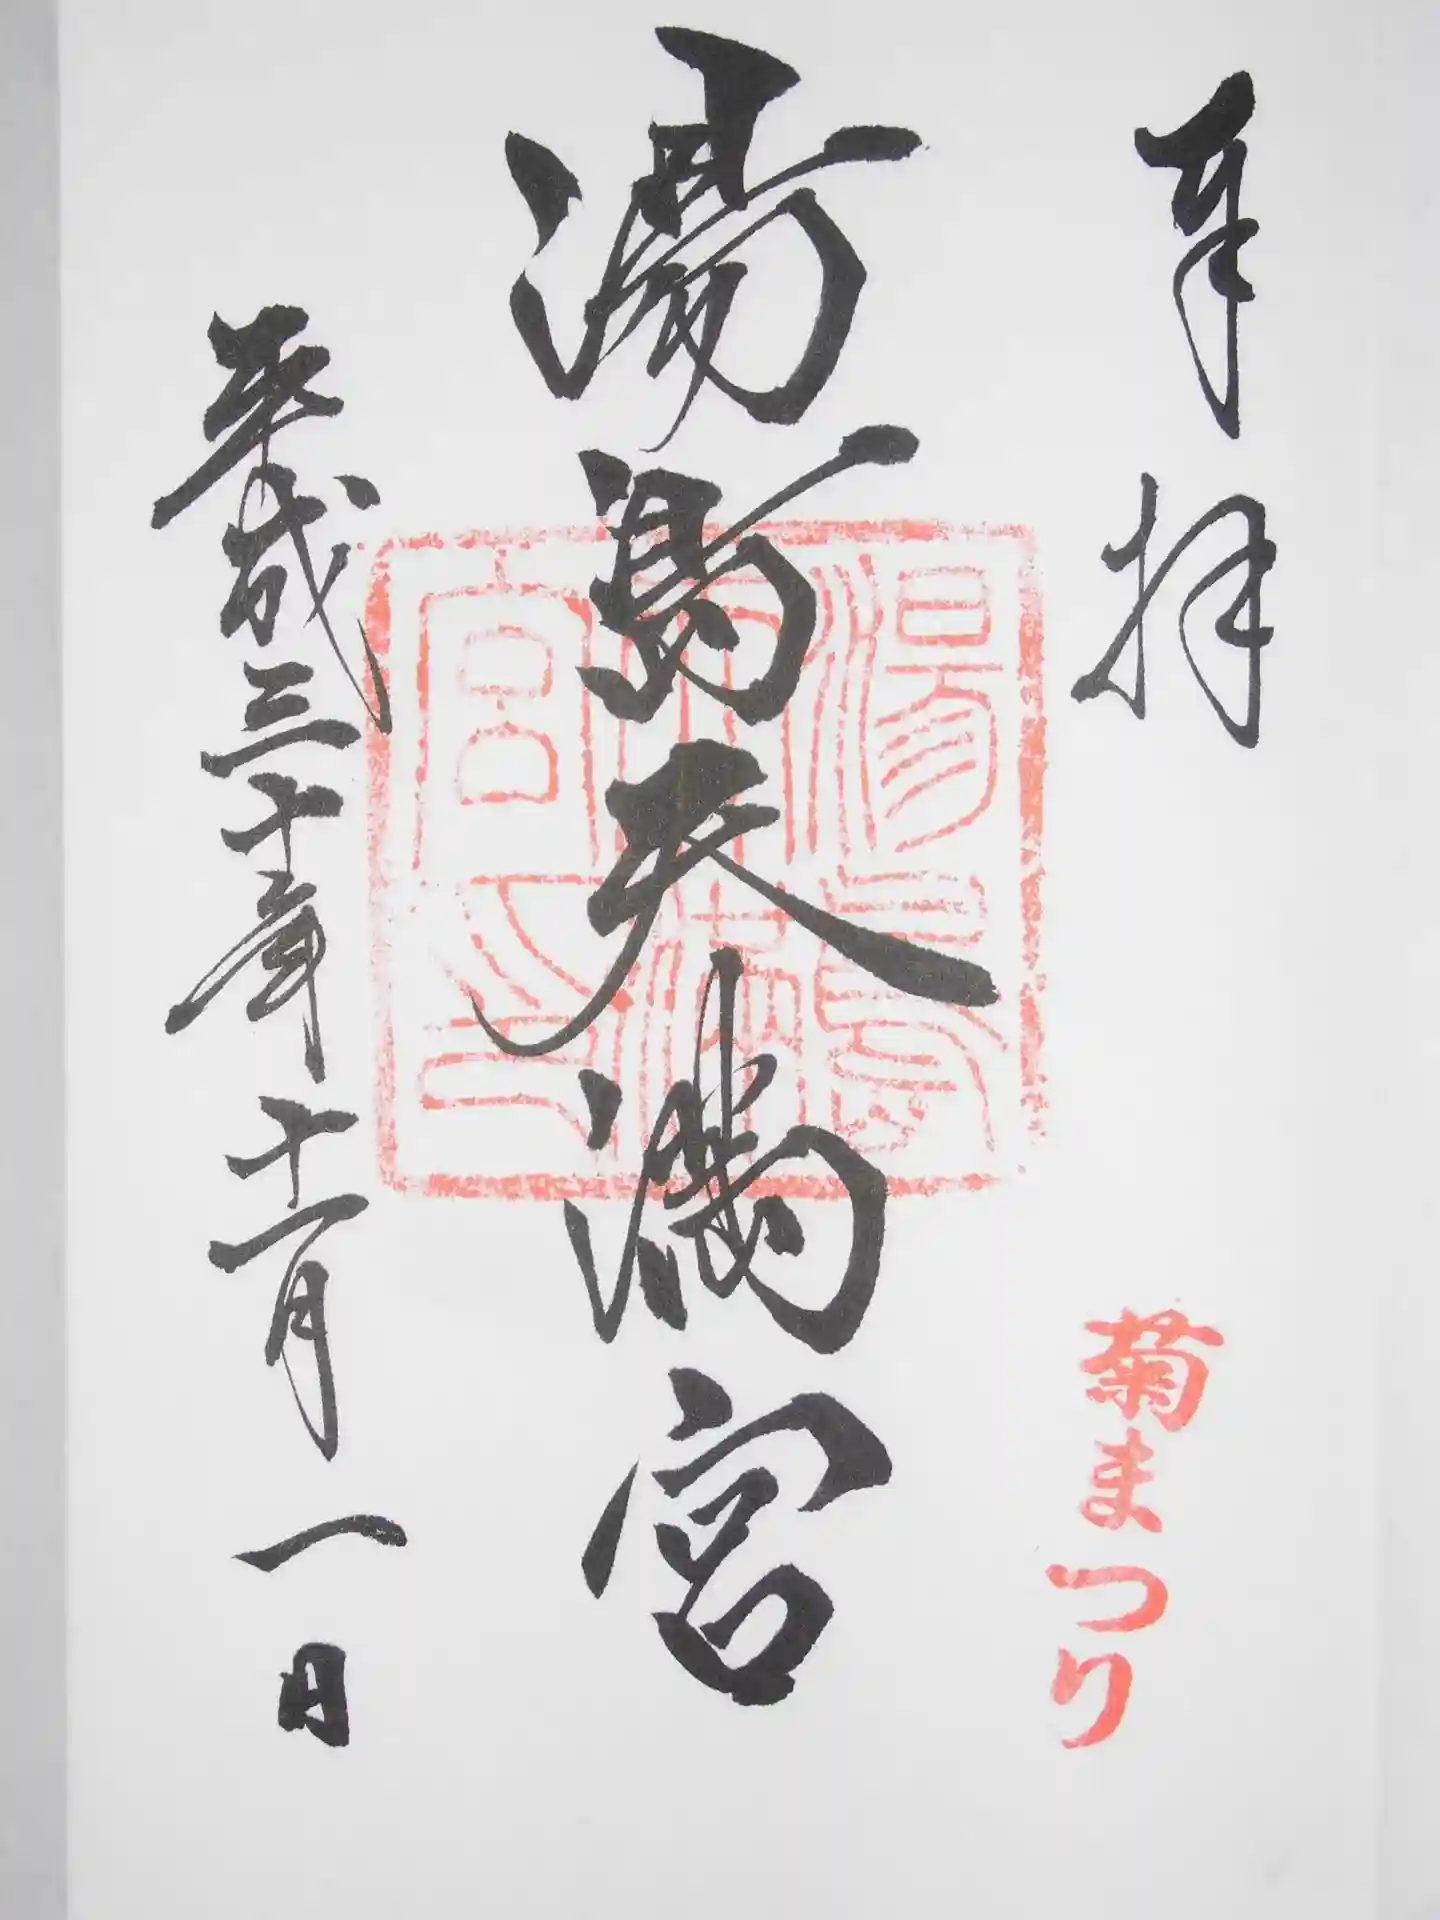 奉拝
菊まつり
湯島天満宮
湯島天満宮之印
平成三十年十一月一日